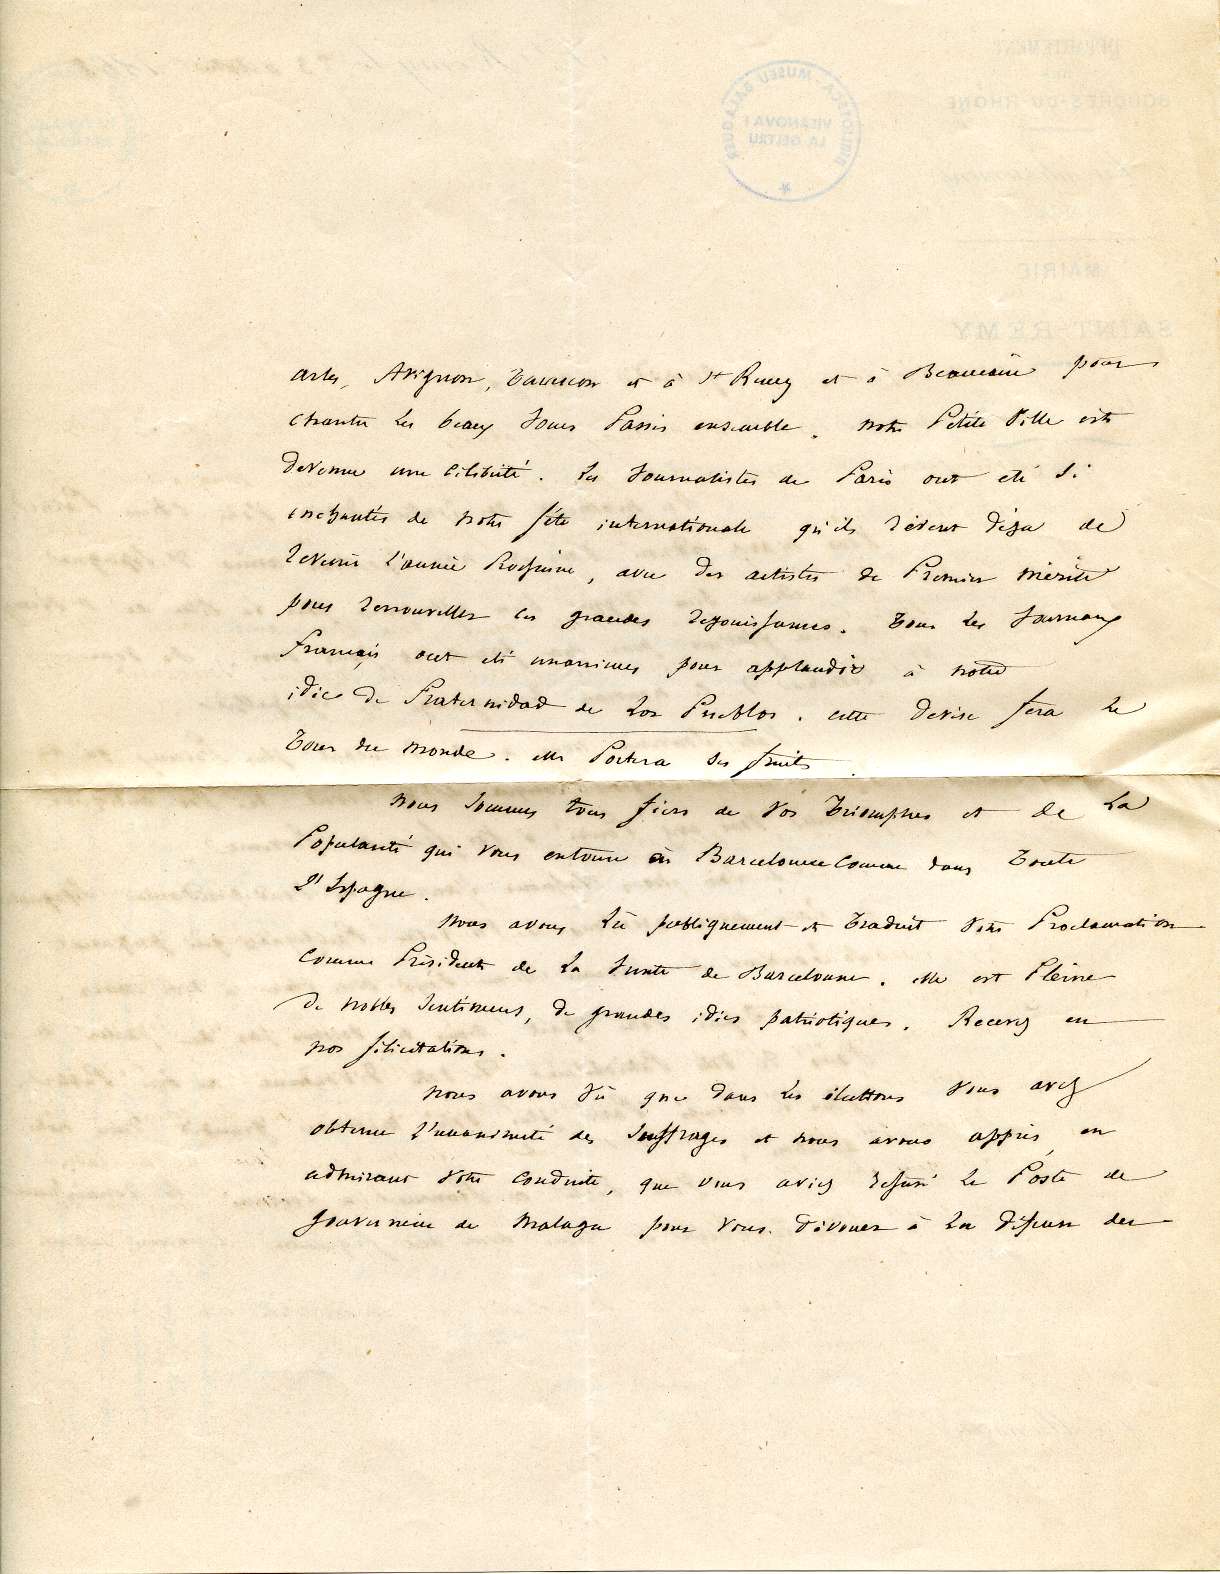 arles, Avignon, Tarascon et à St Remy et à Beaucaire pour
chanter les beaux Jours Passés ensemble. notre Petite Ville est
devenue une célébrité. les Journalistes de Paris ont été si
enchantés de notre fête internationale qu'ils rêvent déja de
revenir l'année Prochaine, avec des artistes de Premier mérite
pour renouveller ces grandes réjouissances. Tous les Journaux
français ont été unanimes pour applaudir à notre
idée de Fraternidad de Los Pueblos. cette devise fera le
Tour du monde. elle Portera ses fruits.
nous sommes tous fiers de vos Triomphes et de La
Popularité qui vous entoure à Barcelonne comme dans Toute
L'Espagne.
nous avons Lû publiquement et Traduit votre Proclamation
comme Président de La Junte de Barcelonne. elle est Pleine
de nobles sentiments, de grandes idées patriotiques. Recevez en
nos félicitations.
nous avons vû que dans les élections vous avez
obtenu l'unanimité des suffrages et nous avons appris, en
admirant votre conduite, que vous aviez refusé le Poste de
gouverneur de Malaga pour vous dévouer à La défense des
BIBLIOTECA-MUSEU BALAGUER
VILANOVA I
LA GELTRU
DÉPARTEMENT
BOUCHES-DU-RHÔNE
MAIRIE
SAINT-REMY